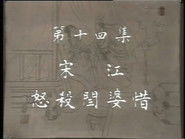 第十四集
宋江
怒殺閻婆惜